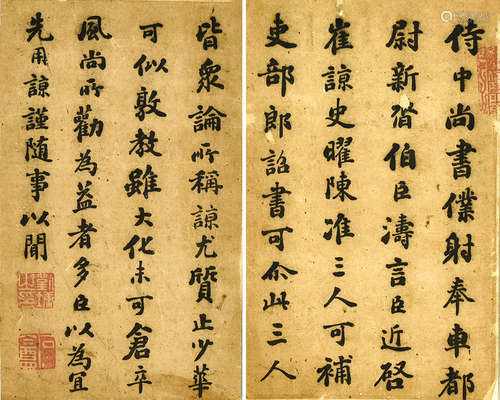 侍中尚書僕射奉車都
尉新沓伯臣濤言臣近啓
崔諒史曜陳准三人可補
吏部郎詔書可尒此三人
皆衆論所稱諒尤質止少華
可以敦教雖大化未可倉卒
風尚所勸為益者多臣以為宜
先用諒謹随事以聞